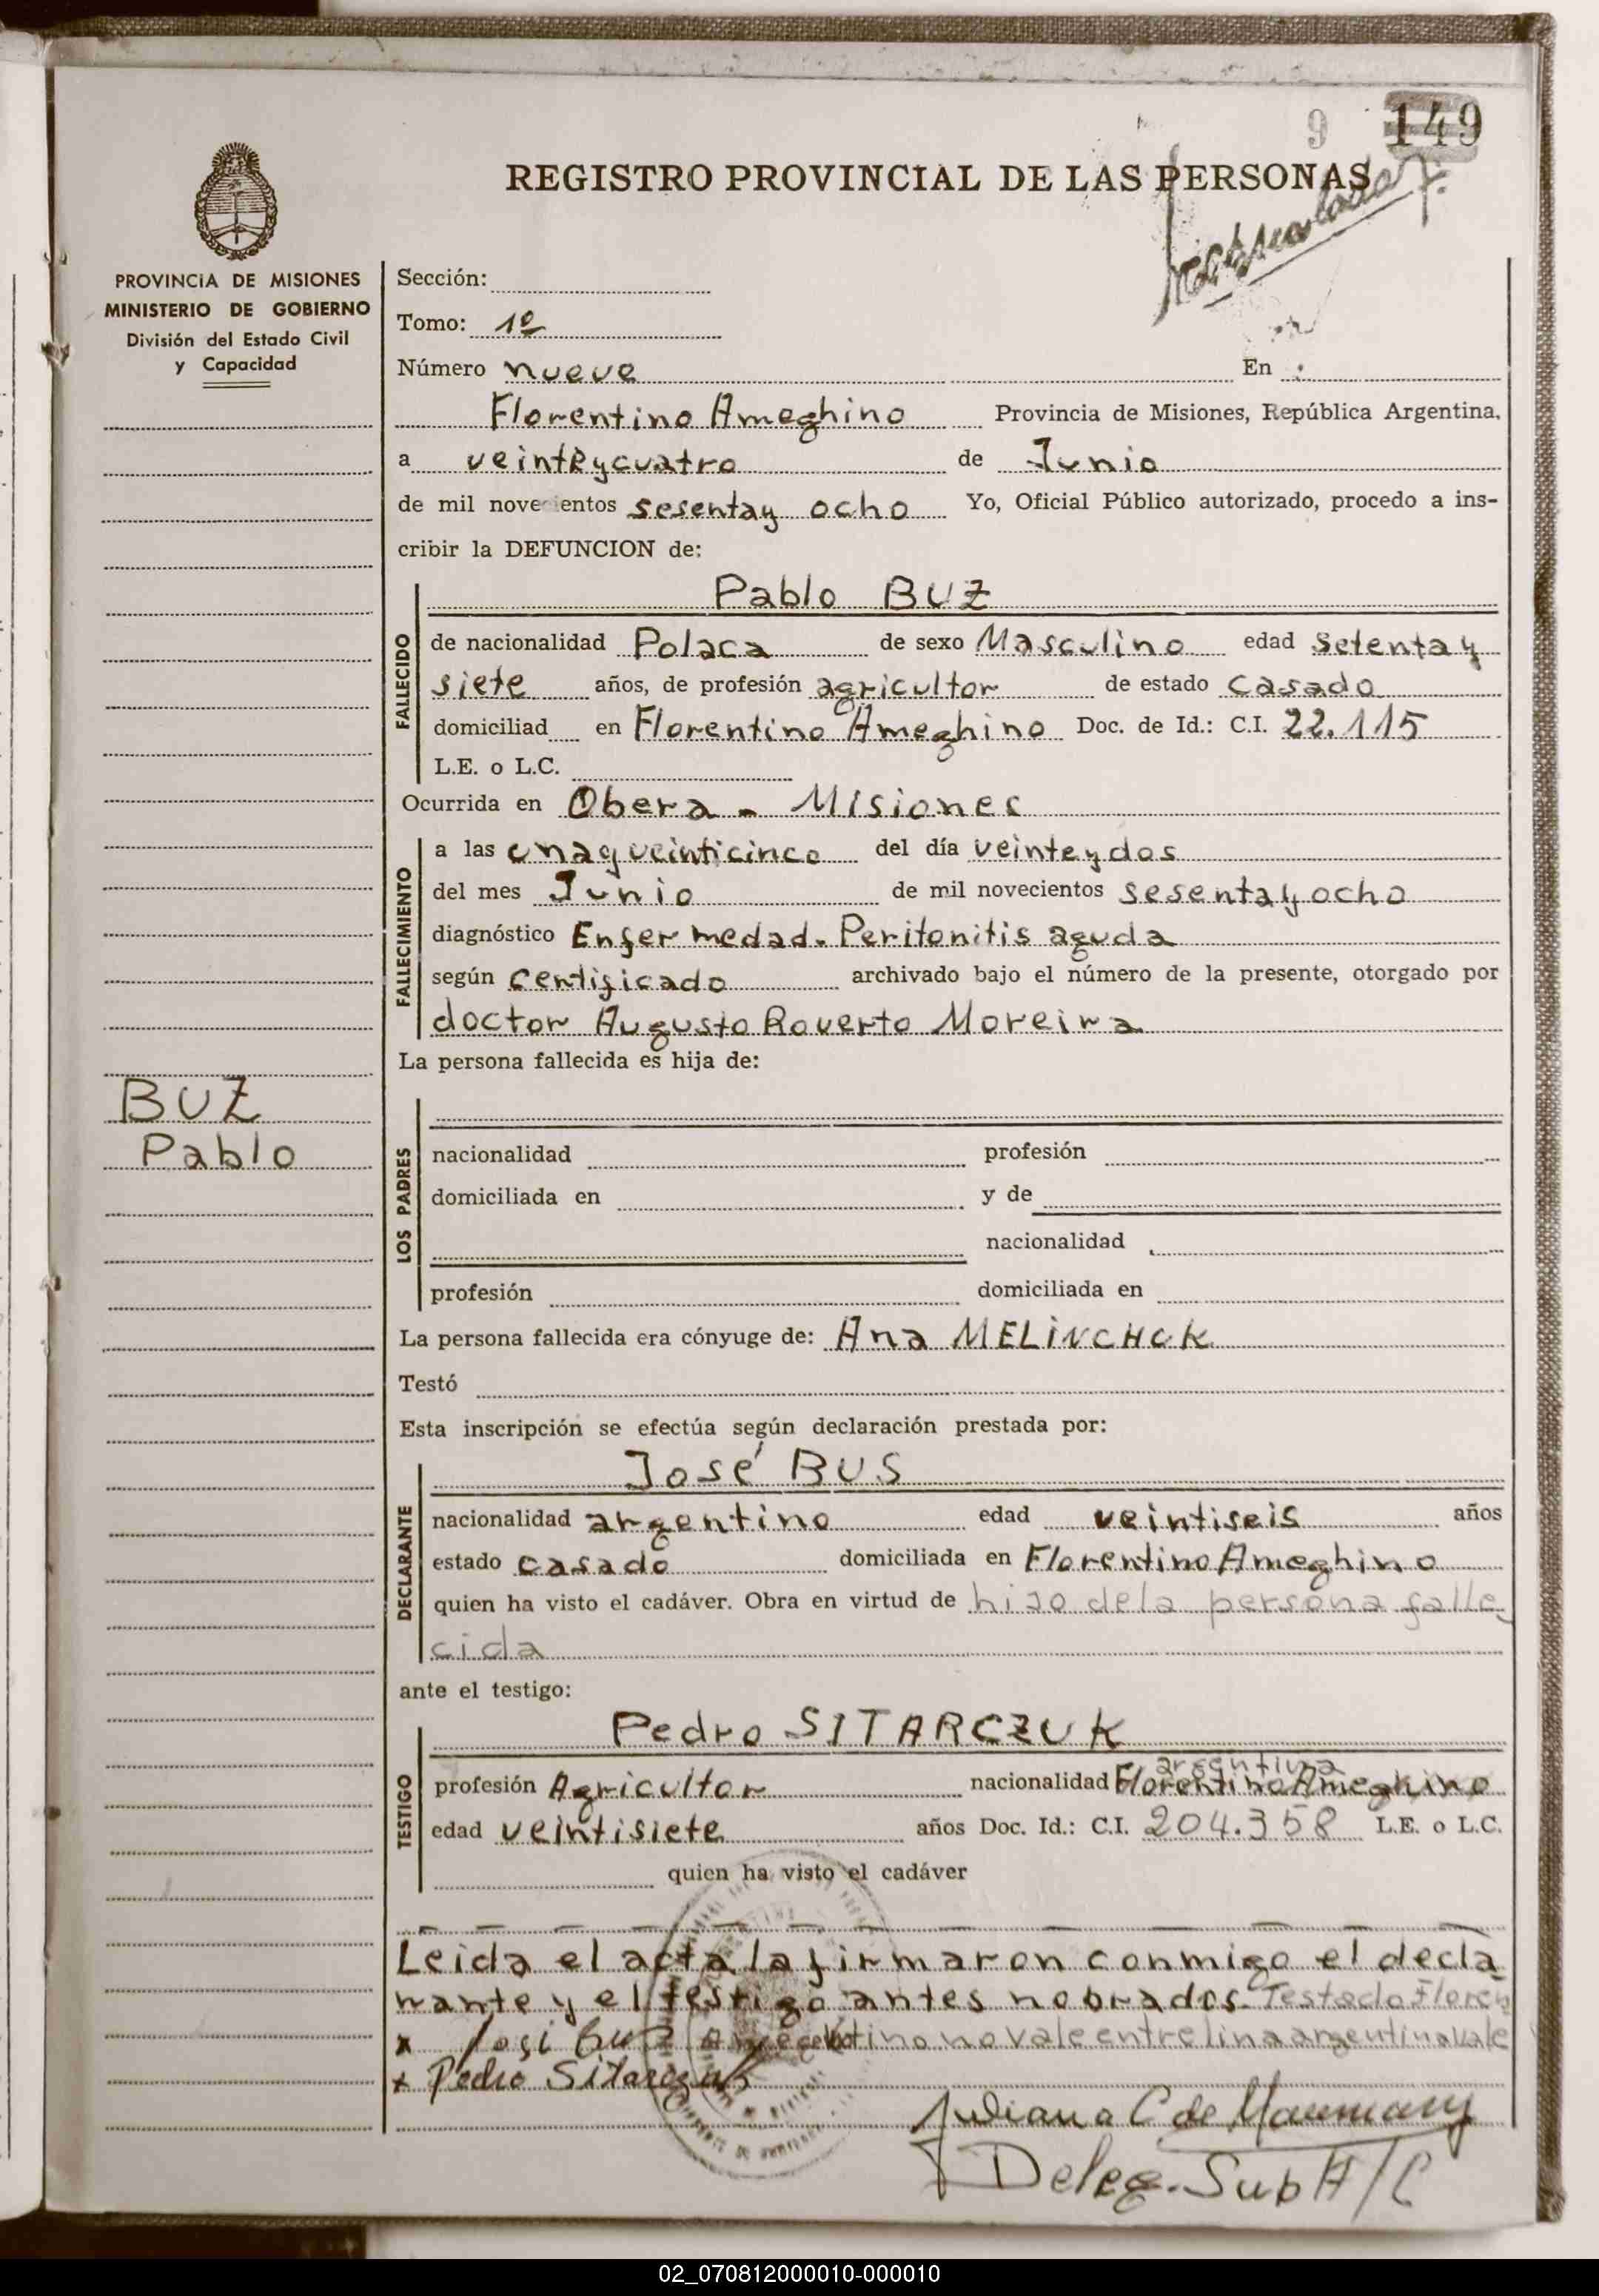 9 149
REGISTRO PROVINCIAL DE LAS PERSONAS
PROVINCIA DE MISIONES
MINISTERIO DE GOBIERNO
División del Estado Civil
y Capacidad
Sección:
Tomo: 1º
Número nueve En
Florentino Ameghino Provincia de Misiones, República Argentina,
a veinteycuatro de Junio
de mil novecientos sesentay ocho Yo, Oficial Público autorizado, procedo a ins-
cribir la DEFUNCION de:
Pablo BUZ
FALLECIDO
de nacionalidad Polaca de sexo Masculino edad setenta y
siete años, de profesión agricultor de estado casado
domiciliad en Florentino Ameghino Doc. de Id.: C.I. 22.115
L.E. o L.C.
Ocurrida en Obera - Misiones
FALLECIMIENTO
a las unay veinticinco del día veinteydos
del mes Junio de mil novecientos sesentayocho
diagnóstico Enfermedad. Peritonitis aguda
según certificado archivado bajo el número de la presente, otorgado por
doctor Augusto Roverto Moreira
La persona fallecida es hija de:
BUZ
Pablo
LOS PADRES
nacionalidad profesión
domiciliada en y de
nacionalidad
profesión domiciliada en
La persona fallecida era cónyuge de: Ana MELINCHUK
Testó
Esta inscripción se efectúa según declaración prestada por:
José BUS
DECLARANTE
nacionalidad argentino edad veintiseis años
estado casado domiciliada en Florentino Ameghino
quien ha visto el cadáver. Obra en virtud de hijo dela persona falle
cida
ante el testigo:
Pedro SITARCZUK
TESTIGO
argentina
profesión Agricultor nacionalidad Florentino Ameghino
edad veintisiete años Doc. Id.: C.I. 204.358 L.E. o L.C.
quien ha visto el cadáver
Leida el acta la firmaron conmigo el decla
rante y el testigo antes nobrados. Testado Floren
x José Buz tino no vale entrelina argentina vale
x Pedro Sitarczuk
Juliana C de
Deleg. Sub A/C
02_070812000010-000010